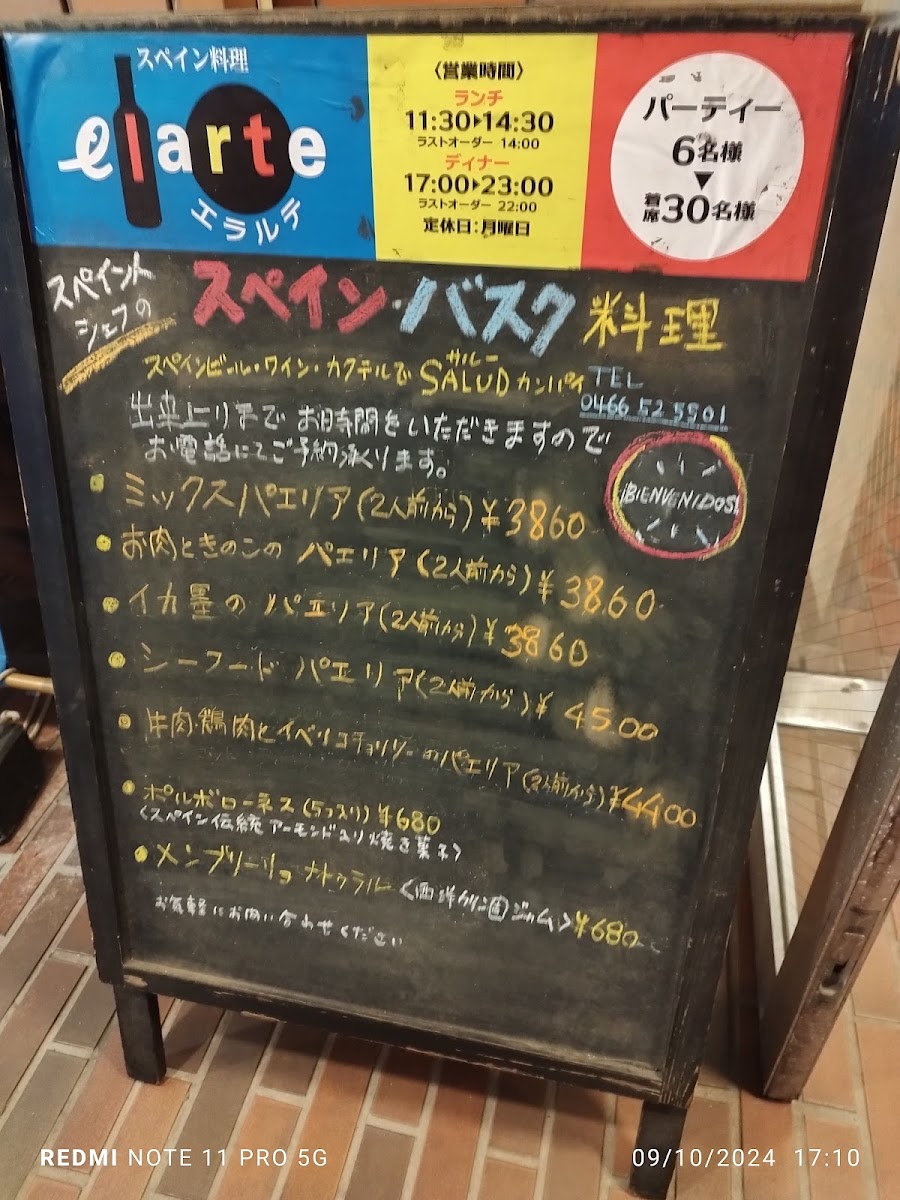 スペイン料理
elarte
エラルテ
〈営業時間〉
ランチ
11:30▶14:30
ラストオーダー 14:00
ディナー
17:00▶23:00
ラストオーダー 22:00
定休日:月曜日
パーティー
6名様
▼
着席30名様
スペイン人
シェフの
スペイン・バスク料理
スペインビール・ワイン・カクテルで SALUD カンパイ
サルー
TEL
0466 52 5501
出来上りまで お時間をいただきますので
お電話にてご予約承ります。
¡BIENVENIDOS!
ミックスパエリア(2人前から)¥3860
お肉ときのこの パエリア(2人前から)¥3860
イカ墨の パエリア(2人前から)¥3860
シーフード パエリア(2人前から)¥4500
牛肉・鶏肉とイベリコチョリソーのパエリア(2人前から)¥4400
ポルボローネス(5つ入り)¥680
〈スペイン伝統アーモンド入り焼き菓子〉
メンブリーリョ ナトゥラル〈西洋カリン ジャム〉¥680
お気軽にお問い合わせください
REDMI NOTE 11 PRO 5G
09/10/2024 17:10